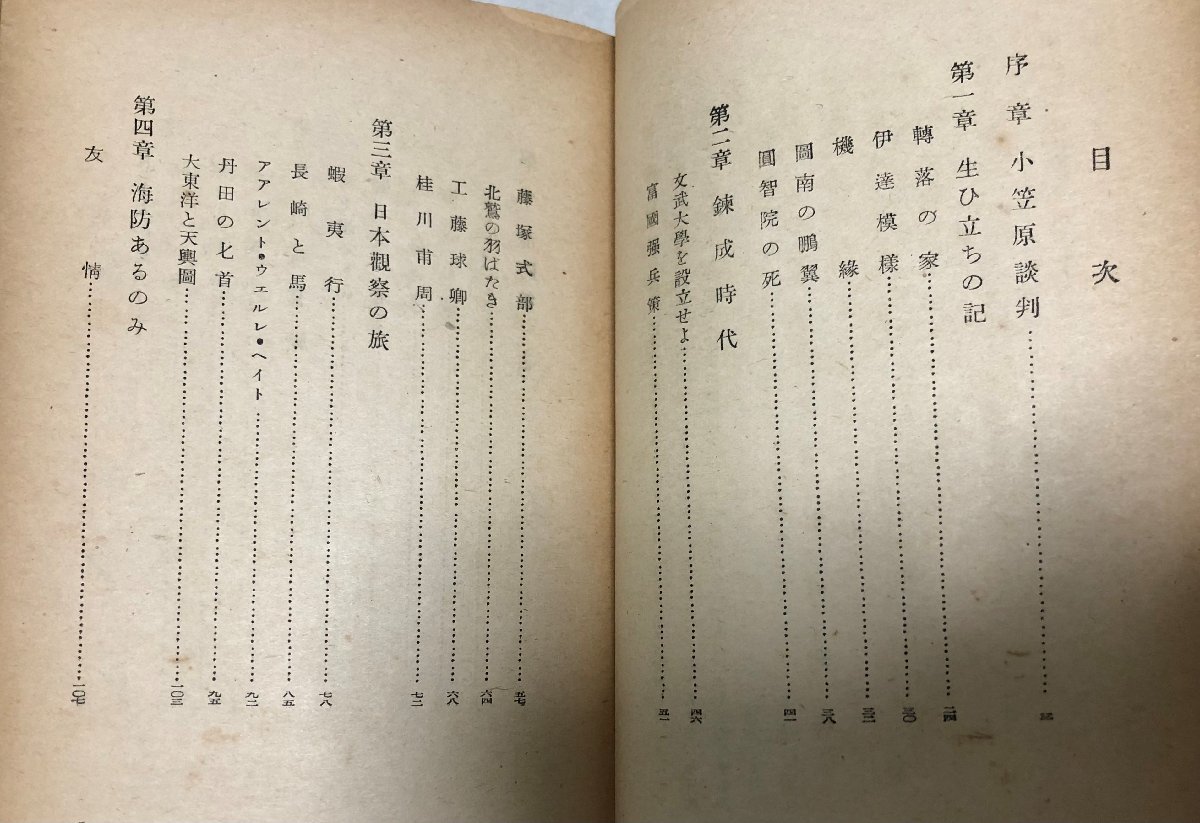 目次
序章 小笠原談判
第一章 生ひ立ちの記
轉落の家 二四
伊達模樣 三〇
機緣 三三
圖南の鵬翼 三八
圓智院の死 四一
第二章 鍊成時代
文武大學を設立せよ 四六
富國强兵策 五一
藤塚式部 五七
北鷲の羽ばたき 六四
工藤球卿 六八
桂川甫周 七二
第三章 日本觀察の旅
蝦夷行 七八
長崎と馬 八五
アアレント・ウエルレ・ヘイト 九二
丹田の匕首 九五
大東洋と天輿圖 一〇三
第四章 海防あるのみ
友情 一〇七